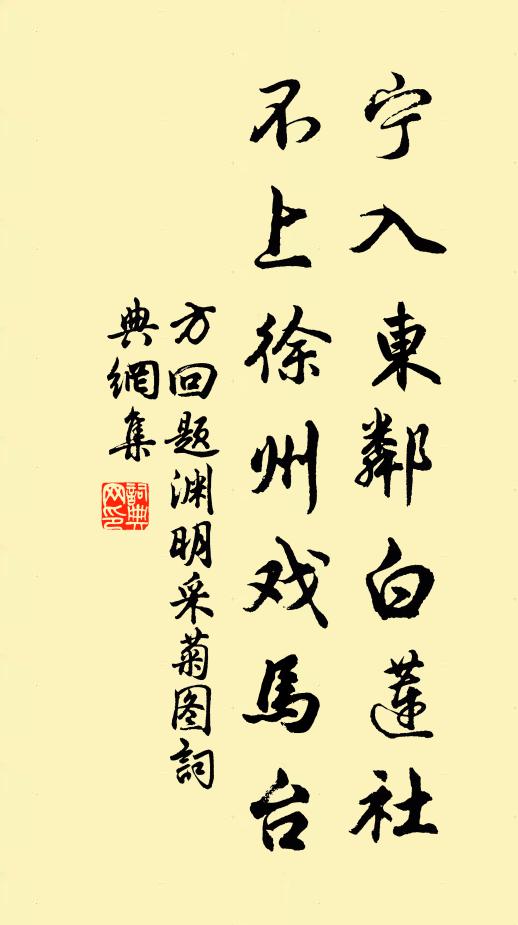 宁入東鄰白蓮社
不上徐州戏馬台
方回题渊明采菊图詞
典網集
詞典网印